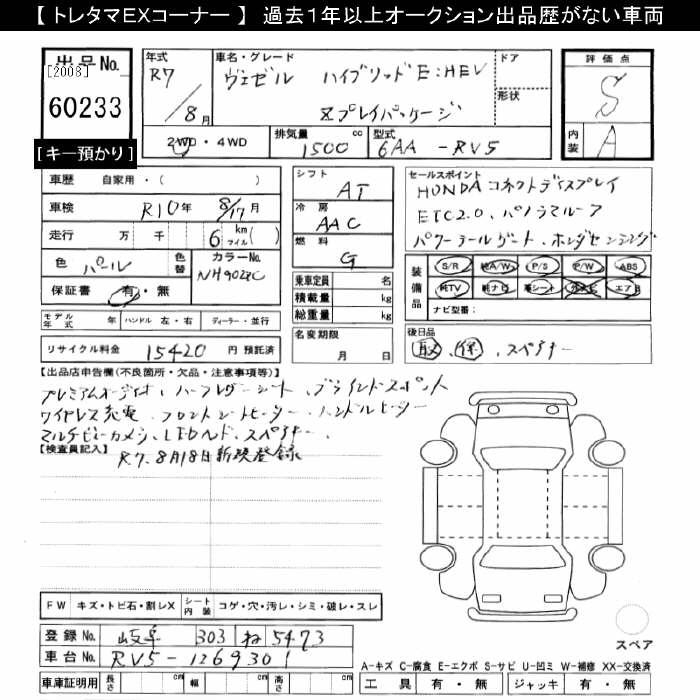 【 トレタマEXコーナー 】 過去1年以上オークション出品歴がない車両
出品No.
[2008]
60233
[キー預かり]
年式 R7/8月
車名・グレード ヴェゼル ハイブリッドE:HEV
Zプレイパッケージ
ドア
形状
2WD・4WD
排気量 1500 cc
型式 6AA-RV5
評価点 S
内装 A
車歴 自家用・( )
車検 R10年 8/17月
走行 万 千 6 km マイル( )
色 パール
色替
カラーNo. NH902PC
保証書 有・無
モデル年式 年 ハンドル 左・右 ディーラー・並行
リサイクル料金 15420 円 預託済
シフト AT
冷房 AAC
燃料 G
乗車定員 名
積載量 kg
総重量 kg
名変期限 月 日
セールスポイント
HONDAコネクトディスプレイ
ETC2.0、パノラマルーフ
パワーテールゲート、ホンダセンシング
装備品 S/R 純A/W P/S P/W ABS
純TV 純ナビ 革シート エアB
ナビ型番:
後日品
取、保、スペアキー
【出品店申告欄(不良箇所・欠品・注意事項等)】
プレミアムオーディオ、ハーフレザーシート、ブラインドスポット
ワイヤレス充電、フロントシートヒーター、ハンドルヒーター
マルチビューカメラ、LEDヘッド、スペアキー、
【検査員記入】
R7、8月18日新規登録
FW キズ・トビ石・割レX
シート内装 コゲ・穴・汚レ・シミ・破レ・スレ
登録No. 岐阜 303 ね 5473
車台No. RV5-1269301
車庫証明用 長さ cm 幅 cm 高さ cm
スペア
A-キズ C-腐食 E-エクボ S-サビ U-凹ミ W-補修 XX-交換済
工具 有・無 ジャッキ 有・無